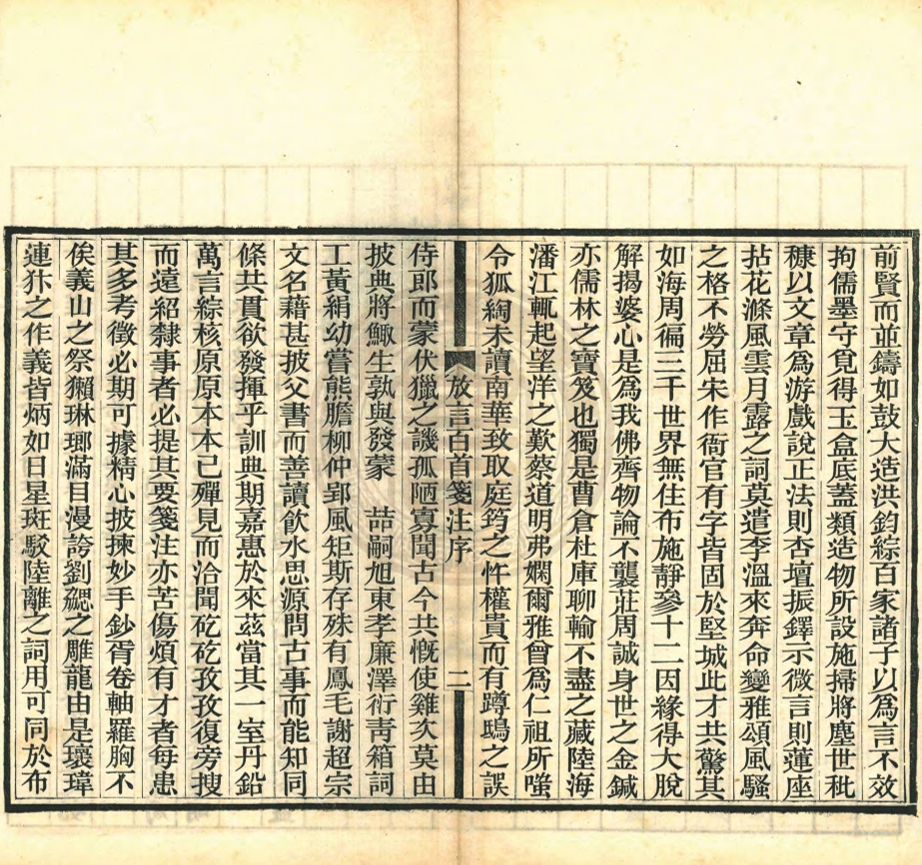 前賢而並鑄如鼓大造洪鈞綜百家諸子以爲言不效
拘儒墨守覓得玉盒底蓋類造物所設施掃將塵世秕
穅以文章爲游戲說正法則杏壇振鐸示微言則蓮座
拈花滌風雲月露之詞莫遣李溫來奔命變雅頌風騷
之格不勞屈宋作衙官有字皆固於堅城此才共驚其
如海周徧三千世界無住布施靜參十二因緣得大脫
解揭婆心是爲我佛齊物論不襲莊周誠身世之金鍼
亦儒林之寶笈也獨是曹倉杜庫聊輸不盡之藏陸海
潘江輒起望洋之歎蔡道明弗嫻爾雅曾爲仁祖所嗤
令狐綯未讀南華致取庭筠之忤權貴而有蹲鴟之誤
放言百首箋注序 二
侍郎而蒙伏獵之譏孤陋寡聞古今共慨使雞次莫由
披典將鯫生孰與發蒙 喆嗣旭東孝廉澤衍靑箱詞
工黃絹幼嘗熊膽柳仲郢風矩斯存殊有鳳毛謝超宗
文名藉甚披父書而善讀飮水思源問古事而能知同
條共貫欲發揮乎訓典期嘉惠於來茲當其一室丹鉛
萬言綜核原原本本已殫見而洽聞矻矻孜孜復旁搜
而遠紹隸事者必提其要箋注亦苦傷煩有才者每患
其多考徵必期可據精心披揀妙手鈔胥卷軸羅胸不
俟義山之祭獺琳瑯滿目漫誇劉勰之雕龍由是瓌瑋
連犿之作義皆炳如日星斑駁陸離之詞用可同於布